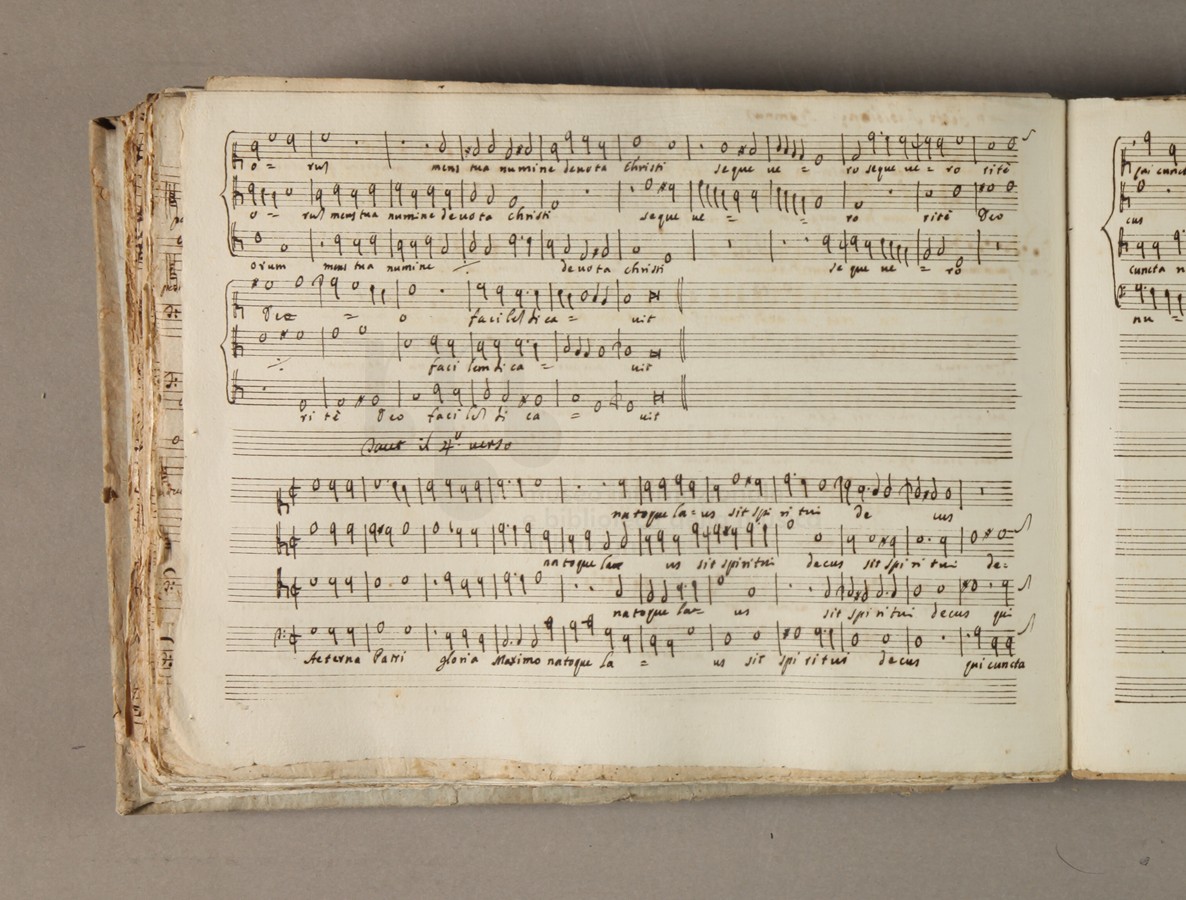 o = rus mens tua numine devota Christi seque ve = ro seque ve = ro ritè
o = rus mens tua numine devota christi seque ve = ro ritè Deo
orum mens tua numine devota christi se que ve = ro
Deo = o facilem dica = vit
facilem dica = vit
ri tè Deo facilem di ca = vit
il 4º verso
natoque la = us sit spi ri tui de cus
natoque laus us sit spiritui decus sit spi ri tui de =
natoque la = us sit spi ri tui decus qui
Aeterna Patri gloria Maximo natoque la = us sit spi ri tui decus qui cuncta
qui cunct
cus
cuncta n
nu =